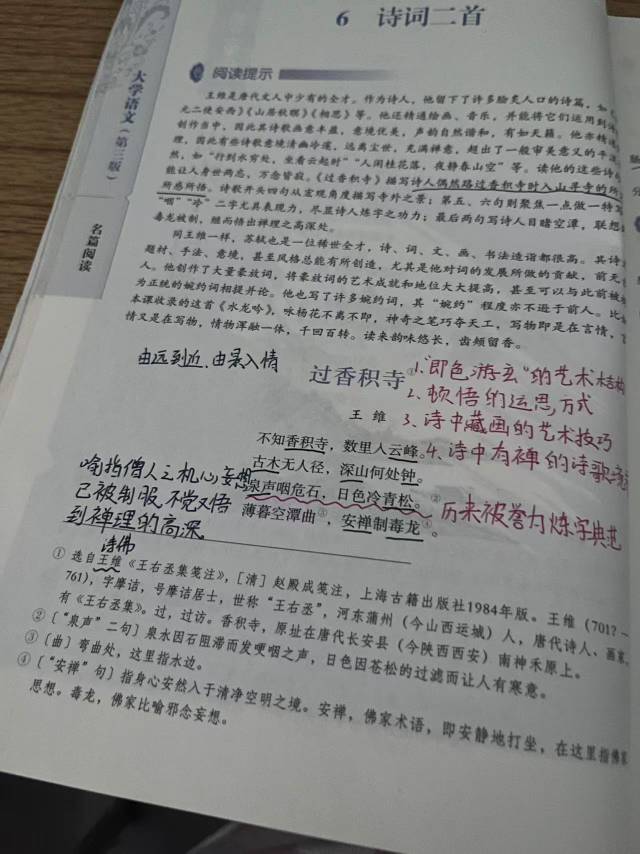 6 诗词二首
大学语文（第三版）
名篇阅读
阅读提示
王维是唐代文人中少有的全才。作为诗人，他留下了许多脍炙人口的诗篇，如
元二使安西》《山居秋暝》《相思》等。他还精通绘画、音乐，并能将它们运用到诗
创作当中，因此其诗歌画意丰盈，意境优美，声韵自然谐和，有如天籁。他亦精通
理，因此有些诗歌意境清幽冷遂，远离尘世，充满禅意，超出了一般审美意义的平淡
然，如“行到水穷处，坐看云起时”“人闲桂花落，夜静春山空”等。读他的这些诗
能让人身世两忘，万念皆寂。《过香积寺》描写诗人偶然路过香积寺时入山寻寺的所
所感所悟。诗歌开头四句从宏观角度描写寺外之景；第五、六句则聚焦一点做一特写
“咽”“冷”二字尤具表现力，尽显诗人炼字之功力；最后两句写诗人目睹空潭，联想
毒龙被制，继而悟出禅理之高深处。
同王维一样，苏轼也是一位稀世全才，诗、词、文、画、书法造诣都很高。其诗
题材、手法、意境，甚至风格总能有所创造，尤其是他对词的发展所做的贡献，前无
人。他创作了大量豪放词，将豪放词的艺术成就和地位大大提高，甚至可以与此前被
为正统的婉约词相提并论。他也写了许多婉约词，其“婉约”程度亦不逊于前人。比
本课收录的这首《水龙吟》，咏杨花不离不即，神奇之笔巧夺天工，写物即是在言情，
情又是在写物，情物浑融一体，千回百转。读来韵味悠长，齿颊留香。
由远到近，由景入情
过香积寺①
王 维
1、“即色游玄”的艺术结构
2、顿悟的运思方式
3、诗中藏画的艺术技巧
4、诗中有禅的诗歌境
不知香积寺，数里入云峰。
古木无人径，深山何处钟。
泉声咽危石，日色冷青松。②
薄暮空潭曲③，安禅制毒龙④。
喻指僧人之机心妄想
已被制服，不觉又悟
到禅理的高深
历来被誉为炼字典范
诗佛
① 选自王维《王右丞集笺注》，[清] 赵殿成笺注，上海古籍出版社1984年版。王维（701？—
761），字摩诘，号摩诘居士，世称“王右丞”，河东蒲州（今山西运城）人，唐代诗人、画家，
有《王右丞集》。过，过访。香积寺，原址在唐代长安县（今陕西西安）南神禾原上。
②〔“泉声”二句〕泉水因石阻滞而发哽咽之声，日色因苍松的过滤而让人有寒意。
③〔曲〕弯曲处，这里指水边。
④〔“安禅”句〕指身心安然入于清净空明之境。安禅，佛家术语，即安静地打坐，在这里指佛家
思想。毒龙，佛家比喻邪念妄想。